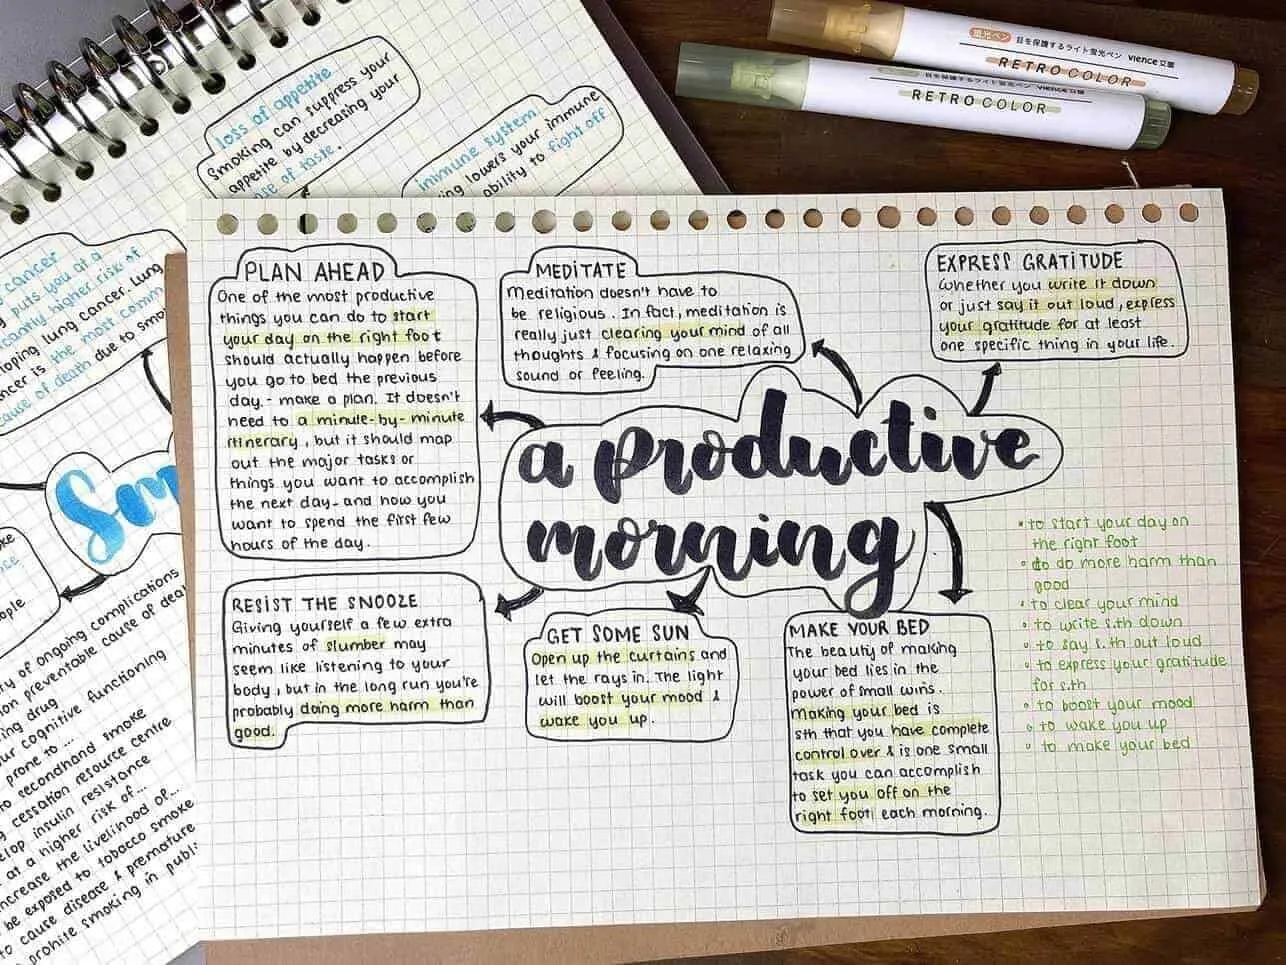 loss of appetite
Smoking can suppress your
appetite by decreasing your
of taste.
immune system
lowers your immune
ability to fight off
蛍光ペン 目を保護するライト蛍光ペン vience文具
RETRO COLOR
RETRO COLOR
cancer
puts you at a
higher risk of
lung cancer. Lung
cancer is the most comm
cause of death due to smo
Sm
PLAN AHEAD
One of the most productive
things you can do to start
your day on the right foot
should actually happen before
you go to bed the previous
day - make a plan. It doesn't
need to a minute-by-minute
itinerary, but it should map
out the major tasks or
things you want to accomplish
the next day-and how you
want to spend the first few
hours of the day.
MEDITATE
Meditation doesn't have to
be religious. In fact, meditation is
really just clearing your mind of all
thoughts & focusing on one relaxing
sound or feeling.
EXPRESS GRATITUDE
Whether you write it down
or just say it out loud, express
your gratitude for at least
one specific thing in your life.
a productive
morning
RESIST THE SNOOZE
Giving yourself a few extra
minutes of slumber may
seem like listening to your
body, but in the long run you're
probably doing more harm than
good.
GET SOME SUN
Open up the curtains and
let the rays in. The light
will boost your mood &
wake you up.
MAKE YOUR BED
The beauty of making
your bed lies in the
power of small wins.
Making your bed is
sth that you have complete
control over & is one small
task you can accomplish
to set you off on the
right foot each morning.
to start your day on
the right foot
to do more harm than
good
to clear your mind
to write s.th down
to say s.th out loud
to express your gratitude
for s.th
to boost your mood
to wake you up
to make your bed
of ongoing complications
preventable cause of dea
drug
cognitive functioning
prone to ...
to secondhand smoke
cessation resource centre
insulin resistance
at a higher risk of...
increase the livelihood of...
be exposed to tobacco smoke
to cause disease & premature
prohite smoking in publ